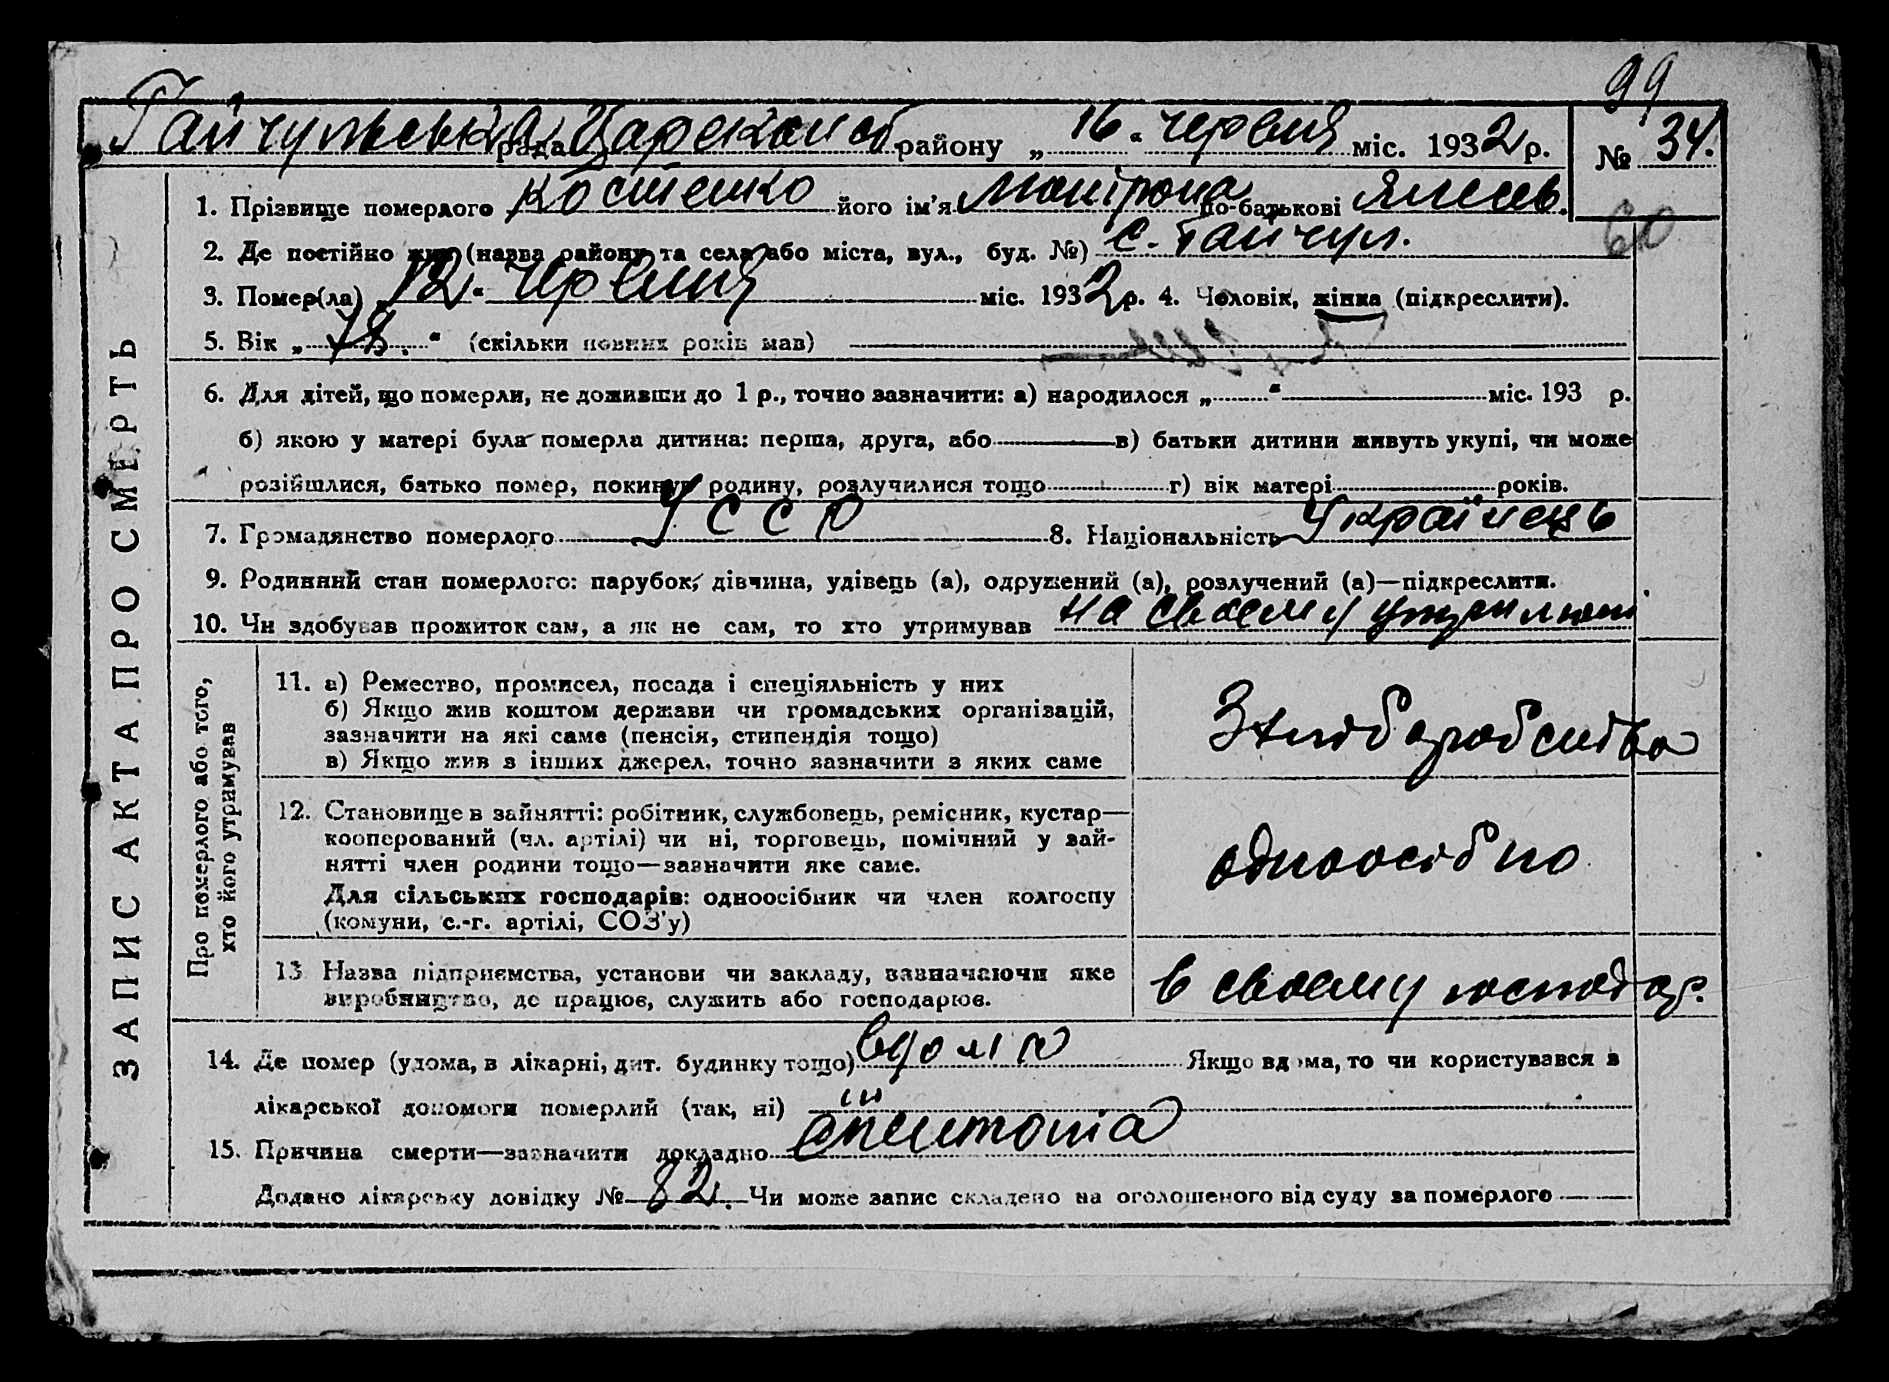 99
Гайчульська рада Царекон об району „ 16 “ червня міс. 1932 р. № 34.
1. Прізвище померлого Костенко його ім'я по-батькові
60
2. Де постійно жив (назва району та села або міста, вул., буд. №) с. Гайчул.
3. Помер(ла) „ 12 “ червня міс. 1932 р. 4. Чоловік, жінка (підкреслити).
5. Вік „ 78. “ (скільки повних років мав)
6. Для дітей, що померли, не доживши до 1 р., точно зазначити: а) народилося „ “ міс. 193 р.
б) якою у матері була померла дитина: перша, друга, або в) батьки дитини живуть укупі, чи може
розійшлися, батько помер, покинув родину, розлучилися тощо г) вік матері років.
7. Громадянство померлого УССР 8. Національність Українець
9. Родинний стан померлого: парубок, дівчина, удівець (а), одружений (а), розлучений (а)—підкреслити.
10. Чи здобував прожиток сам, а як не сам, то хто утримував на своему
ЗАПИС АКТА ПРО СМЕРТЬ
Про померлого або того, хто його утримував
11. а) Ремество, промисел, посада і спеціяльність у них
б) Якщо жив коштом держави чи громадських організацій,
зазначити на які саме (пенсія, стипендія тощо)
в) Якщо жив з інших джерел, точно зазначити з яких саме
12. Становище в зайнятті: робітник, службовець, ремісник, кустар—
кооперований (чл. артілі) чи ні, торговець, помічний у зай-
нятті член родини тощо—зазначити яке саме.
Для сільських господарів: одноосібник чи член колгоспу
(комуни, с.-г. артілі, СОЗ'у)
одноосібно
13 Назва підприємства, установи чи закладу, зазначаючи яке
виробництво, де працює, служить або господарює.
в своему господар.
14. Де помер (удома, в лікарні, дит. будинку тощо) вдома Якщо вдома, то чи користувався з
лікарської допомоги померлий (так, ні) ні
15. Причина смерти—зазначити докладно
Додано лікарську довідку № 82. Чи може запис складено на оголошеного від суду за померлого